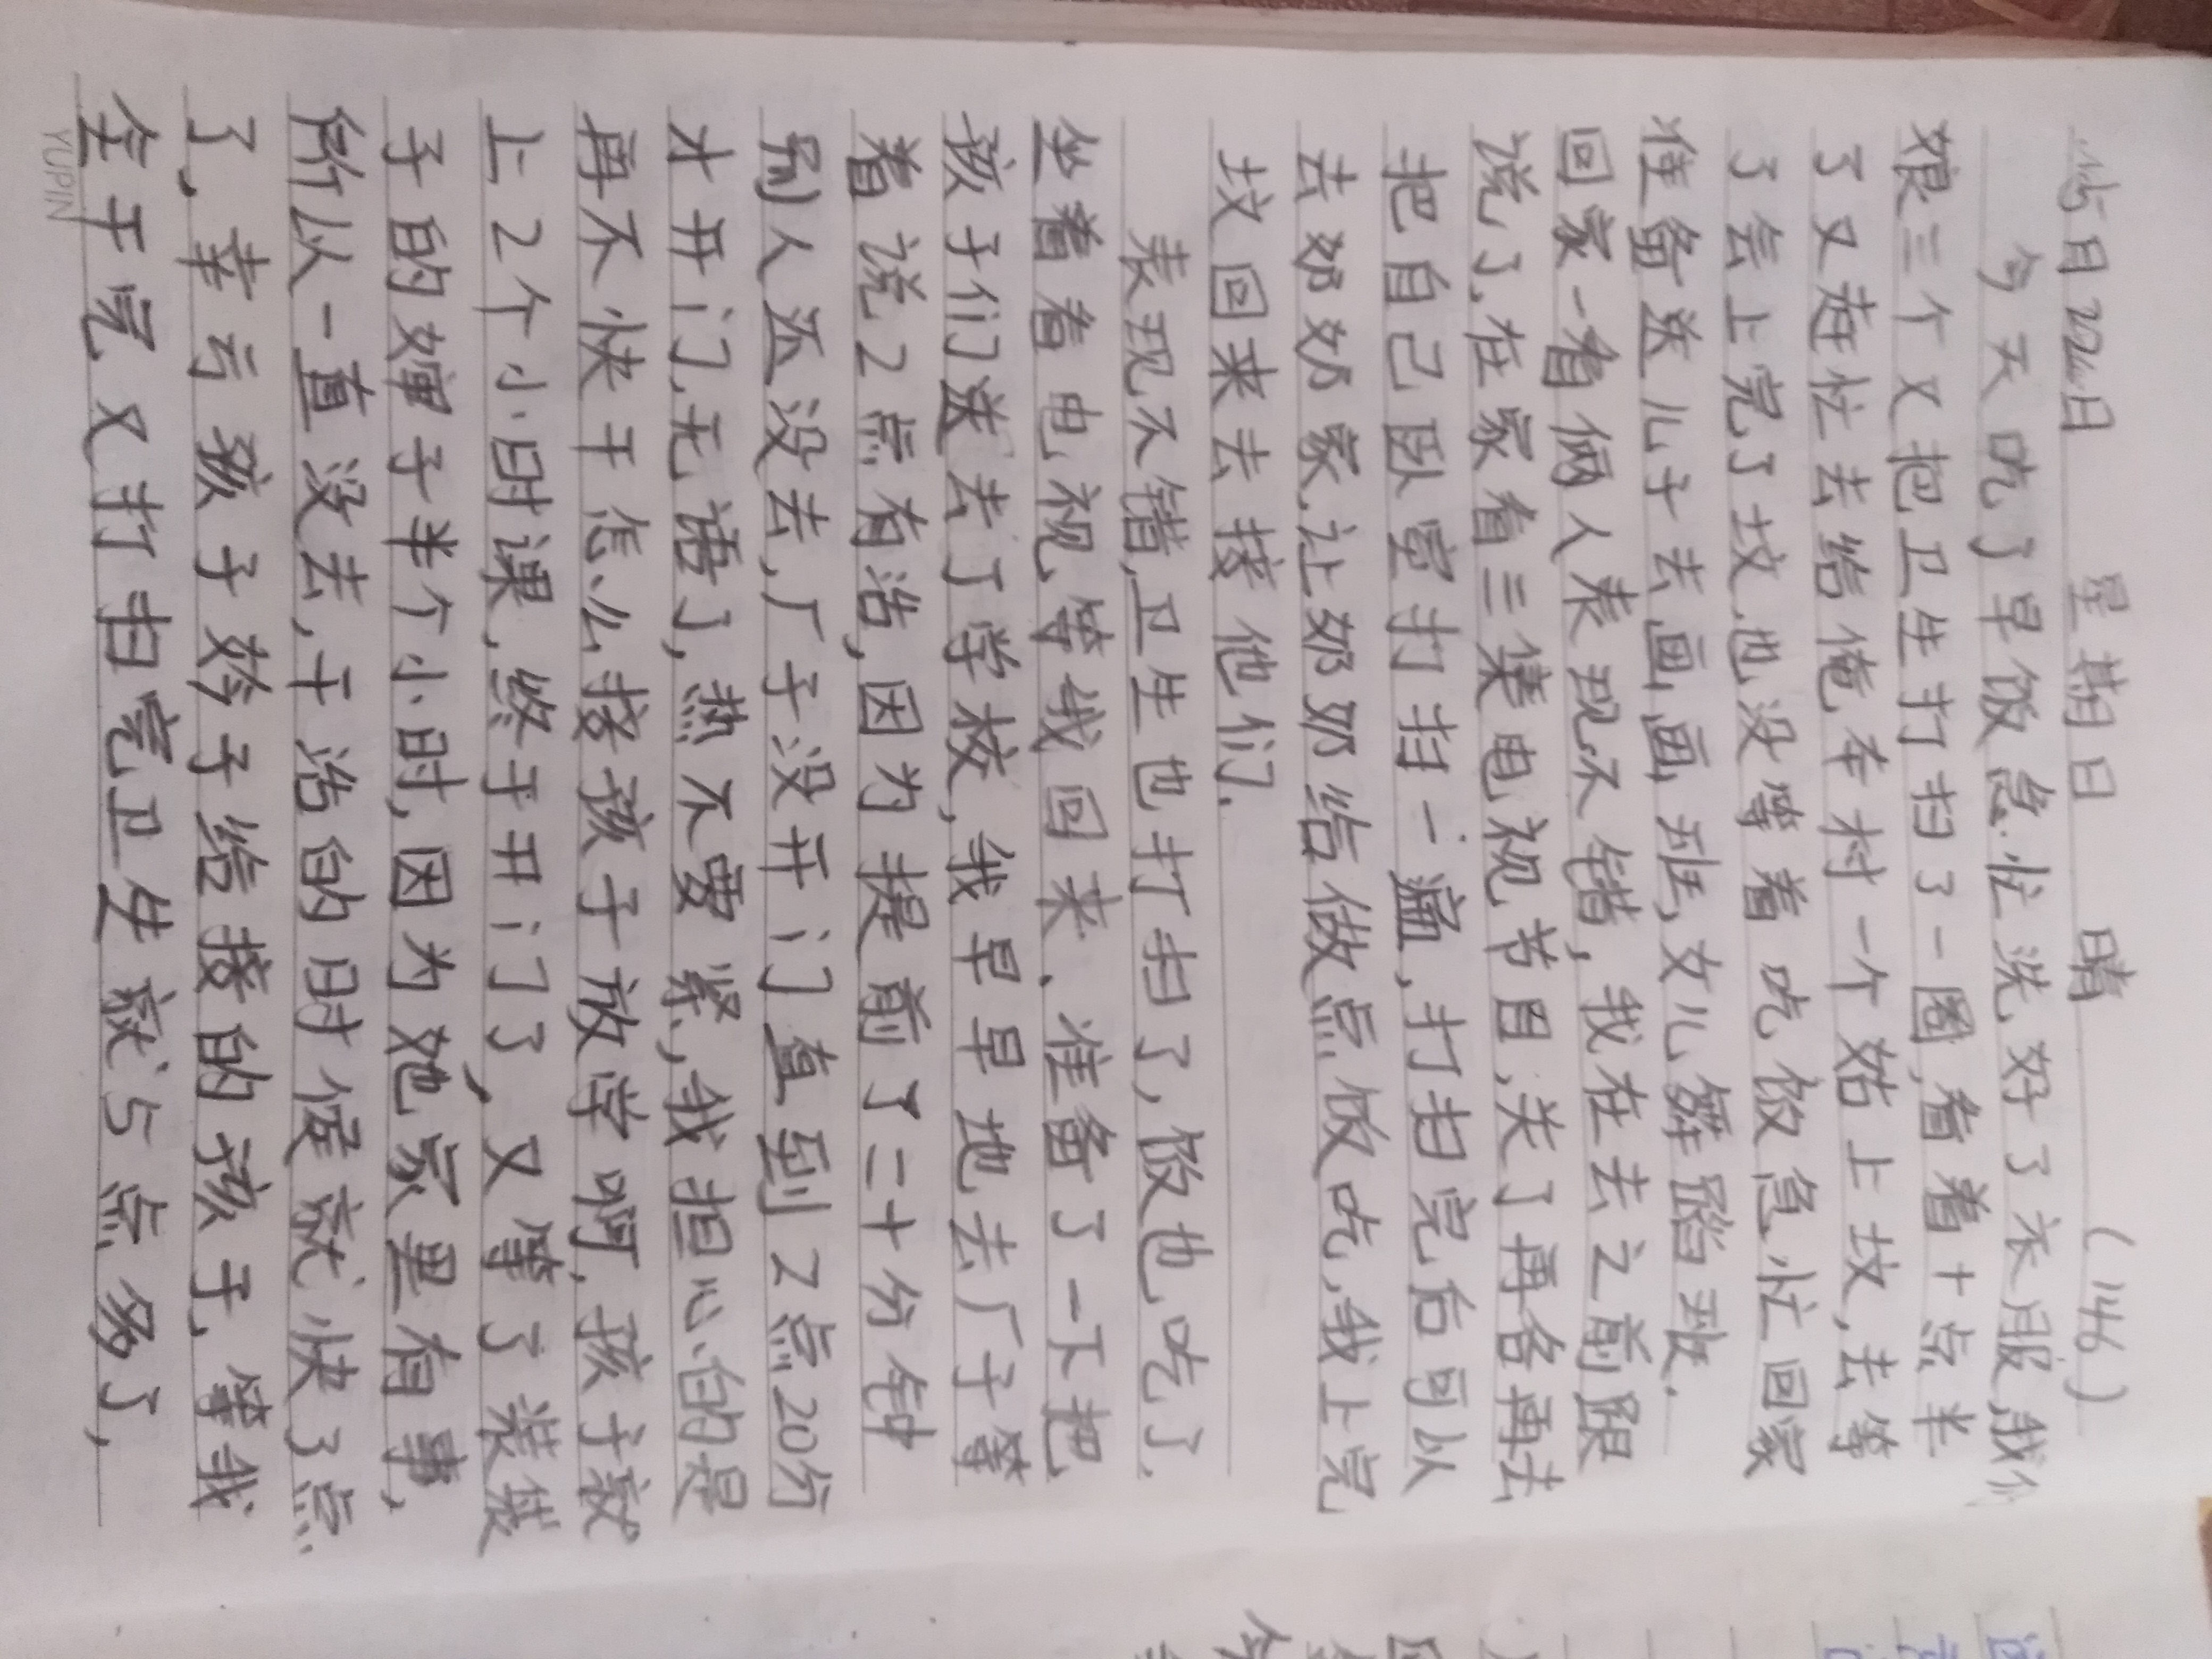 5月22日 星期日 晴 (146)
今天吃了早饭急忙洗好了衣服,我们
娘三个又把卫生打扫了一圈,看着十点半
了又赶忙去给俺本村一个姑上坟,去等
了会上完了坟,也没等着吃饭急忙回家
准备送儿子去画画班,女儿舞蹈班.
回家一看俩人表现不错,我在去之前跟
说了,在家看三集电视节目,关了再各再去
把自己卧室打扫一遍,打扫完后可以
去奶奶家,让奶奶给做点饭吃,我上完
坟回来去接他们.
表现不错,卫生也打扫了,饭也吃了.
坐着看电视,等我回来、准备了一下把
孩子们送去了学校,我早早地去厂子等
着说2点有活,因为提前了二十分钟
别人还没去,厂子没开门直到2点20分
才开门,无语了,热不要紧,我担心的是
再不快干怎么接孩子放学啊,孩子就
上2个小时课,终于开门了,又等了装筷
子的婶子半个小时,因为她家里有事,
所以一直没去,干活的时候就快3点
了,幸亏孩子妗子给接的孩子,等我
全干完又打扫完卫生就5点多了,
YUPIN